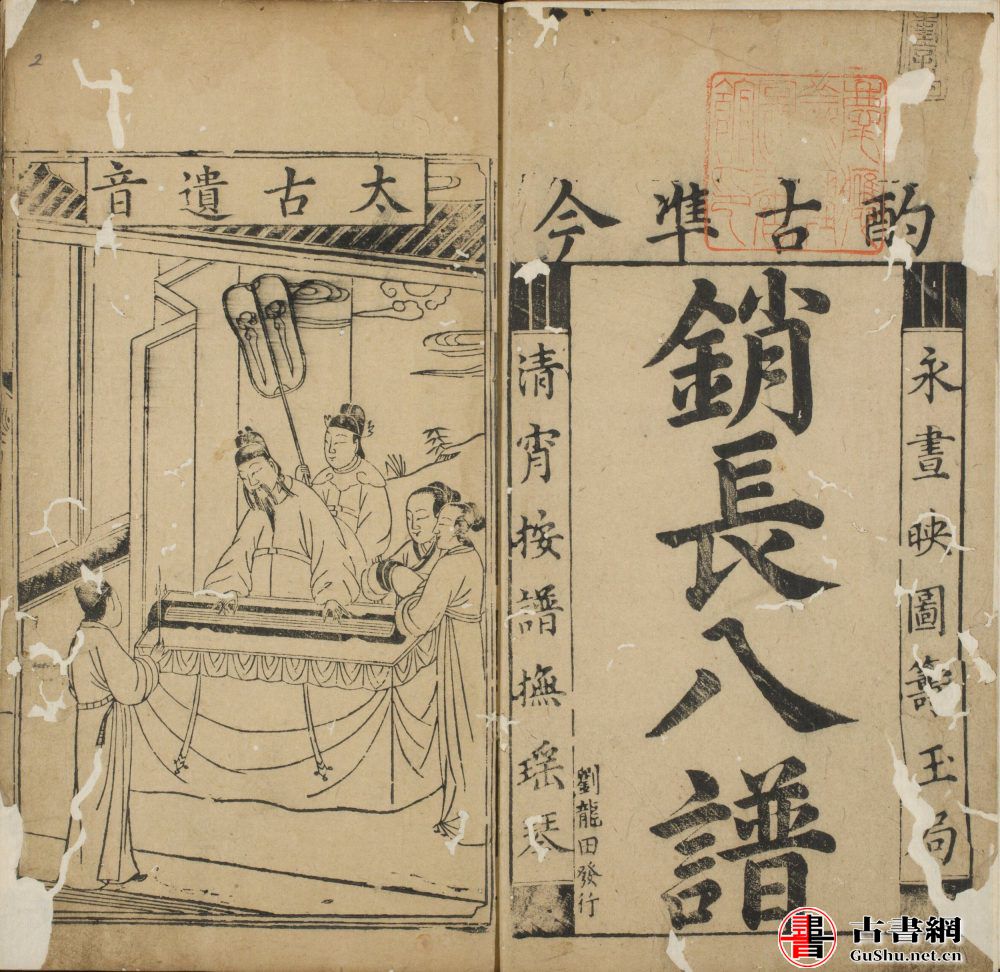 酌古準今
永晝映圖籌玉局
銷長八譜
劉龍田發行
清宵按譜撫瑤琴
太古遺音
2
古書網
GuShu.net.cn